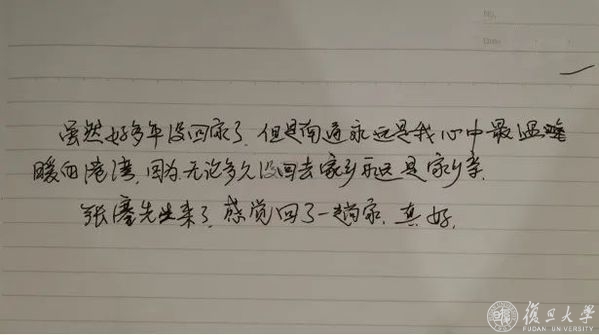 NO.
Date:
虽然好多年没回家了,但是南通永远是我心中最温
暖的港湾,因为无论多久没回去家乡永远是家乡
张謇先生来了,感觉回了一趟家,真好.
復旦大學
FUDAN UNIVERSITY